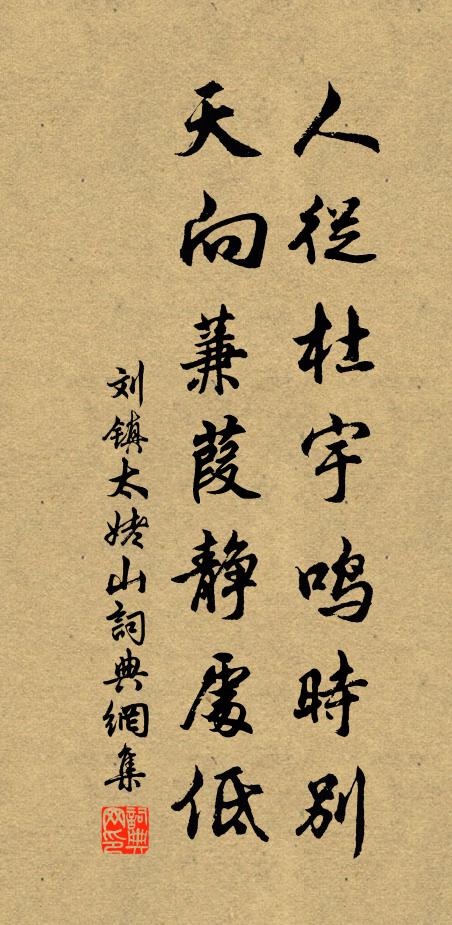 人從杜宇鸣時别
天向蒹葭静處低
刘镇太姥山詞典網集
詞典网印